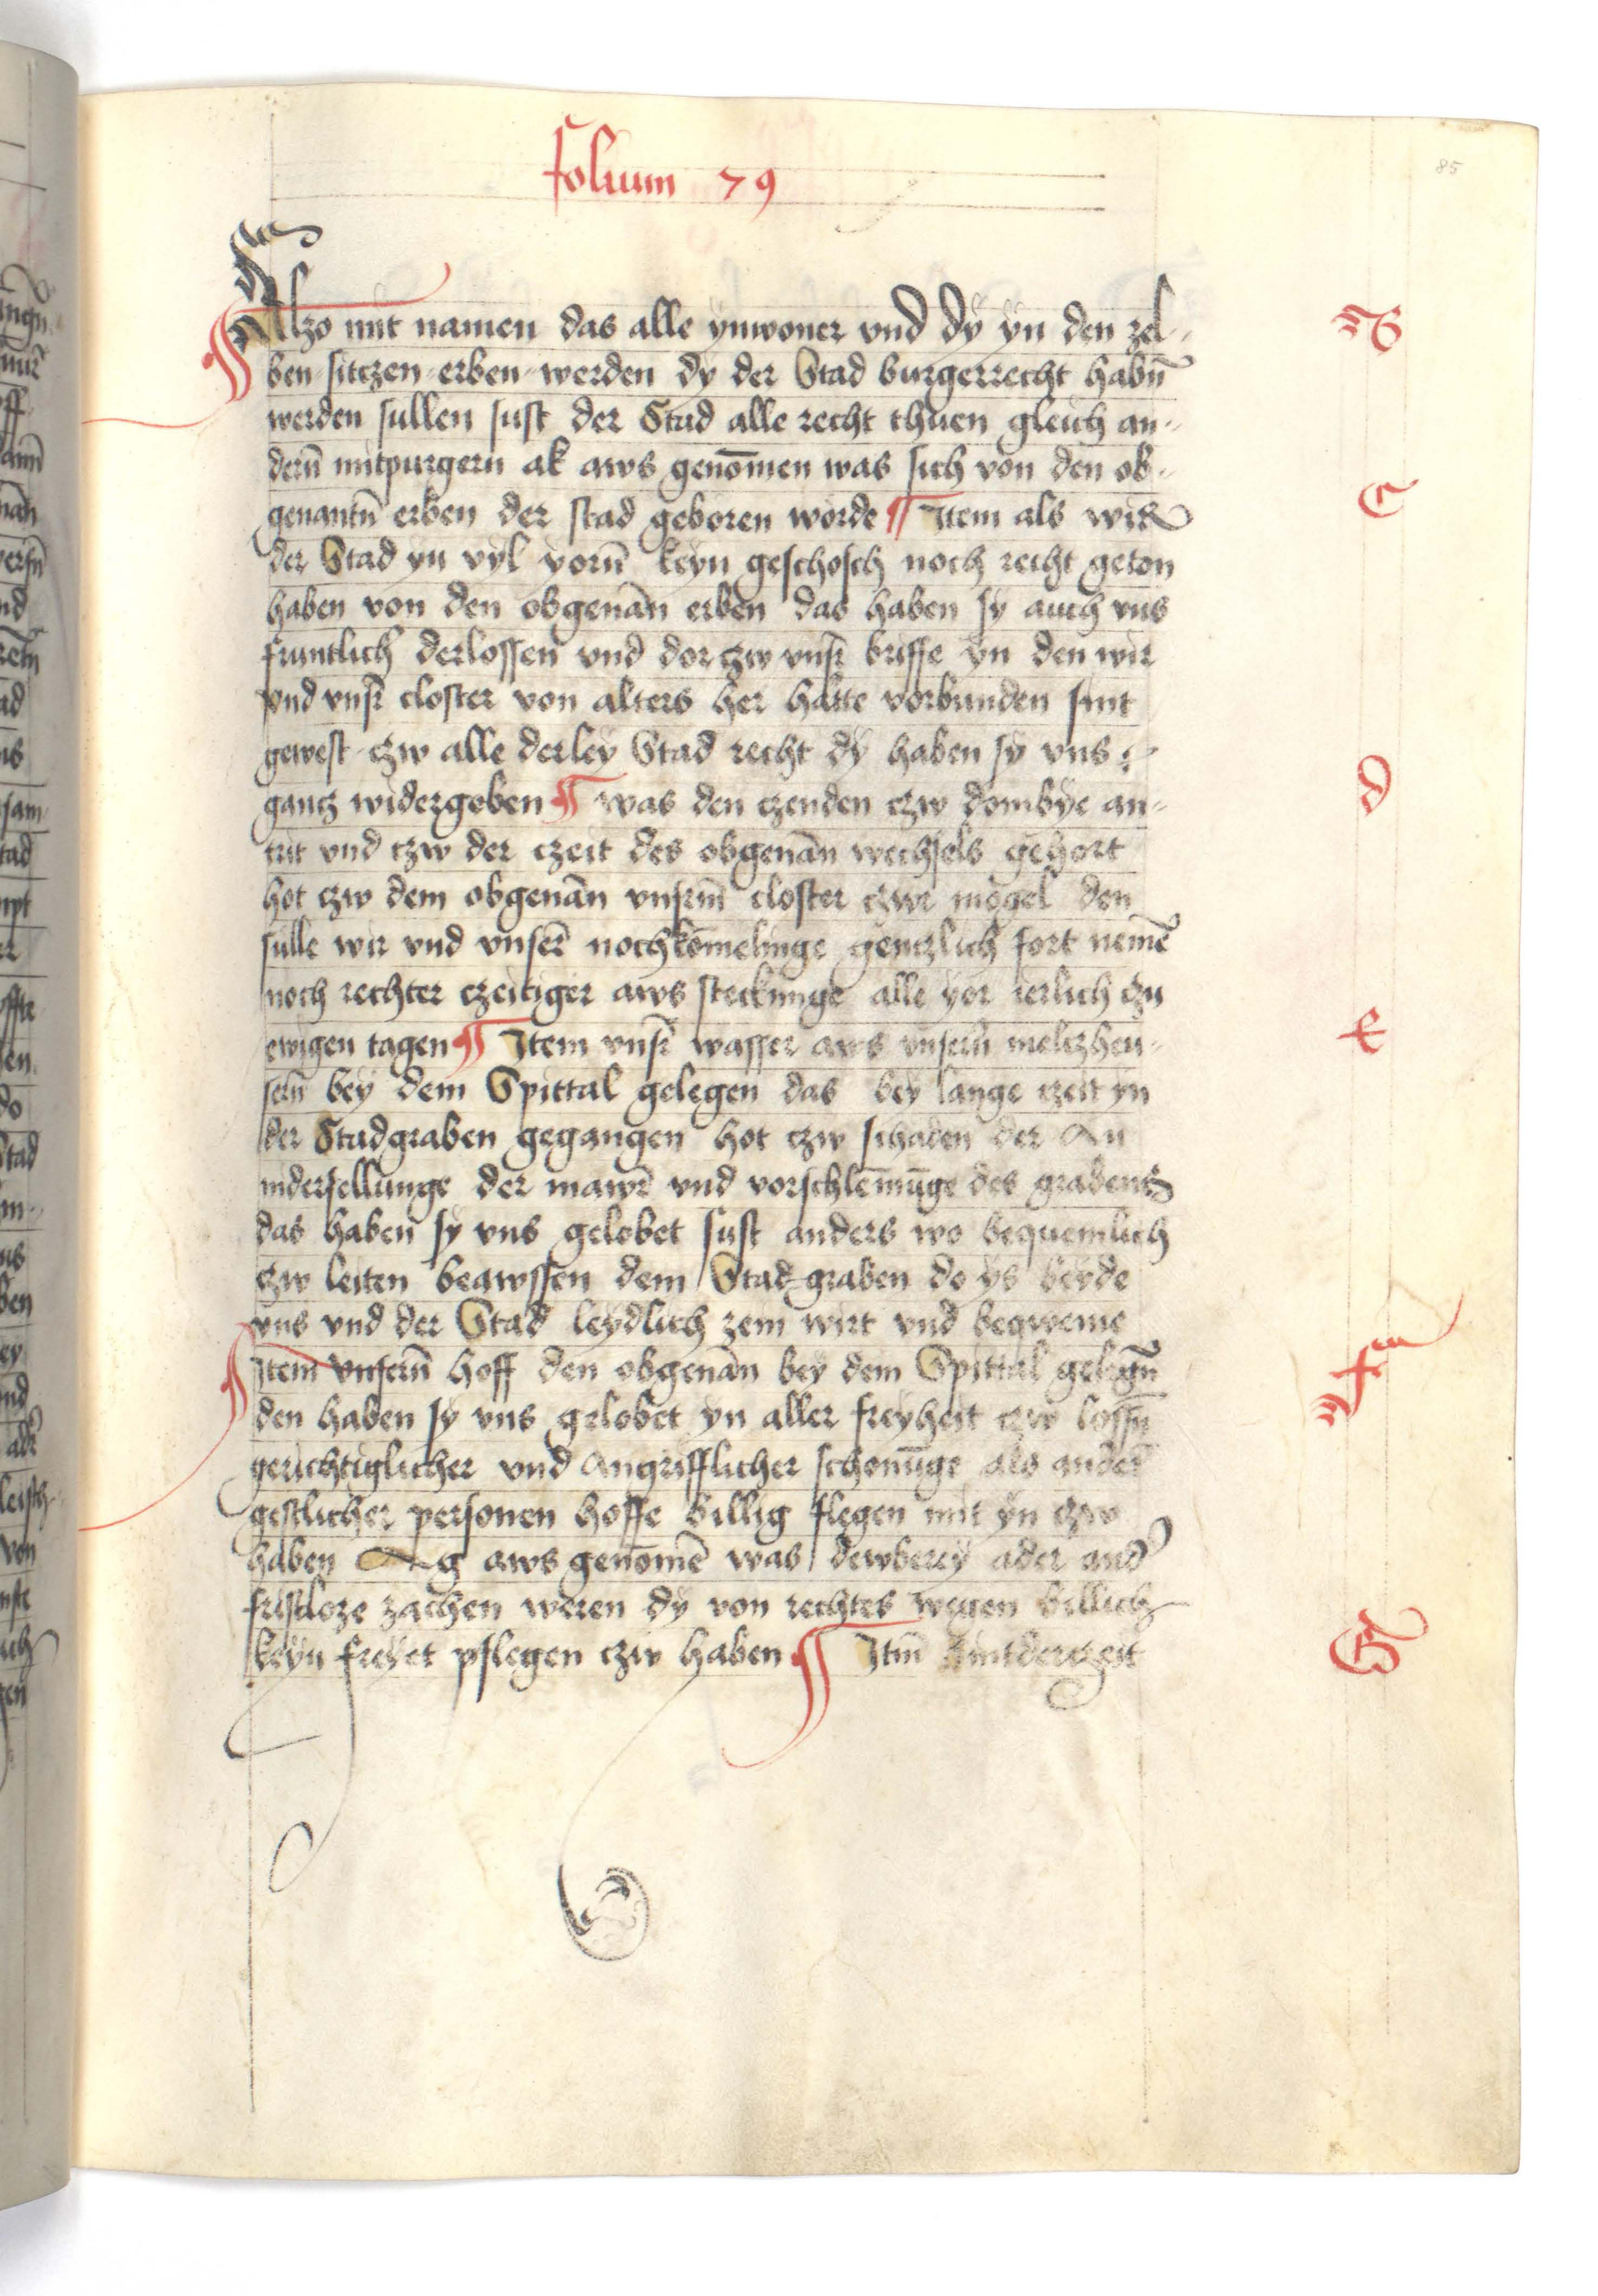 folium 79
85
Alzo mit namen das alle ynwoner vnd dy yn den zel-
B
ben sitczen erben werden dy der Stad burgerrecht habn̄
werden sullen sust der Stad alle recht thuen gleich an-
dern̄ mitpurgern ak aws genōmen was sich von den ob-
genantn̄ erben der stad geboren worde ¶ Item als wir
C
der Stad yn vyl yorn̄ keyn geschosch noch recht geton
haben von den obgenān erben das haben sy auch vns
fruntlich derlossen vnd dor czw vnsr̄ briffe yn den wir
vnd vnsr̄ closter von alters her hatte vorbunden sint
gewest czw alle derley Stad recht dy haben sy vns
gantz widergeben ¶ was den czenden czw dombye an-
d
trit vnd czw der czeit des obgenān wechsels gehort
hot czw dem obgenān vnsrm̄ closter czw mogel den
sulle wir vnd vnser̄ nochkōmelinge gentzlich fort nemē
noch rechter czeitiger aws steckunge alle yor ierlich czu
ewigen tagen ¶ Item vnsr̄ wasser aws vnsern̄ meltzheu-
e
sern̄ bey dem Spittal gelegen das bey lange czeit yn
der Stadgraben gegangen hot czw schaden der
nidersellunge der mawr̄ vnd vorschlēmūge des grabens
das haben sy vns gelobet sust anders wo bequemlich
czw leiten beawssen dem Stad graben do ys beyde
vns vnd der Stad leydlich zein wirt vnd beqweme
Item vnsern̄ hoff den obgenān bey dem Spittal gelegn̄
f
den haben sy vns gelobet yn aller freyheit czw lossn̄
gerichtiglicher vnd Angrifflicher schonūge als ander̄
gestlicher personen hoffe billig flegen mit yn czw
haben aws genōmē was dewberey ader and̕
fristloze zachen weren dy von rechtes wegen billich
keyn freyet pflegen czw haben ¶ Itm̄ Sintderczeit
G